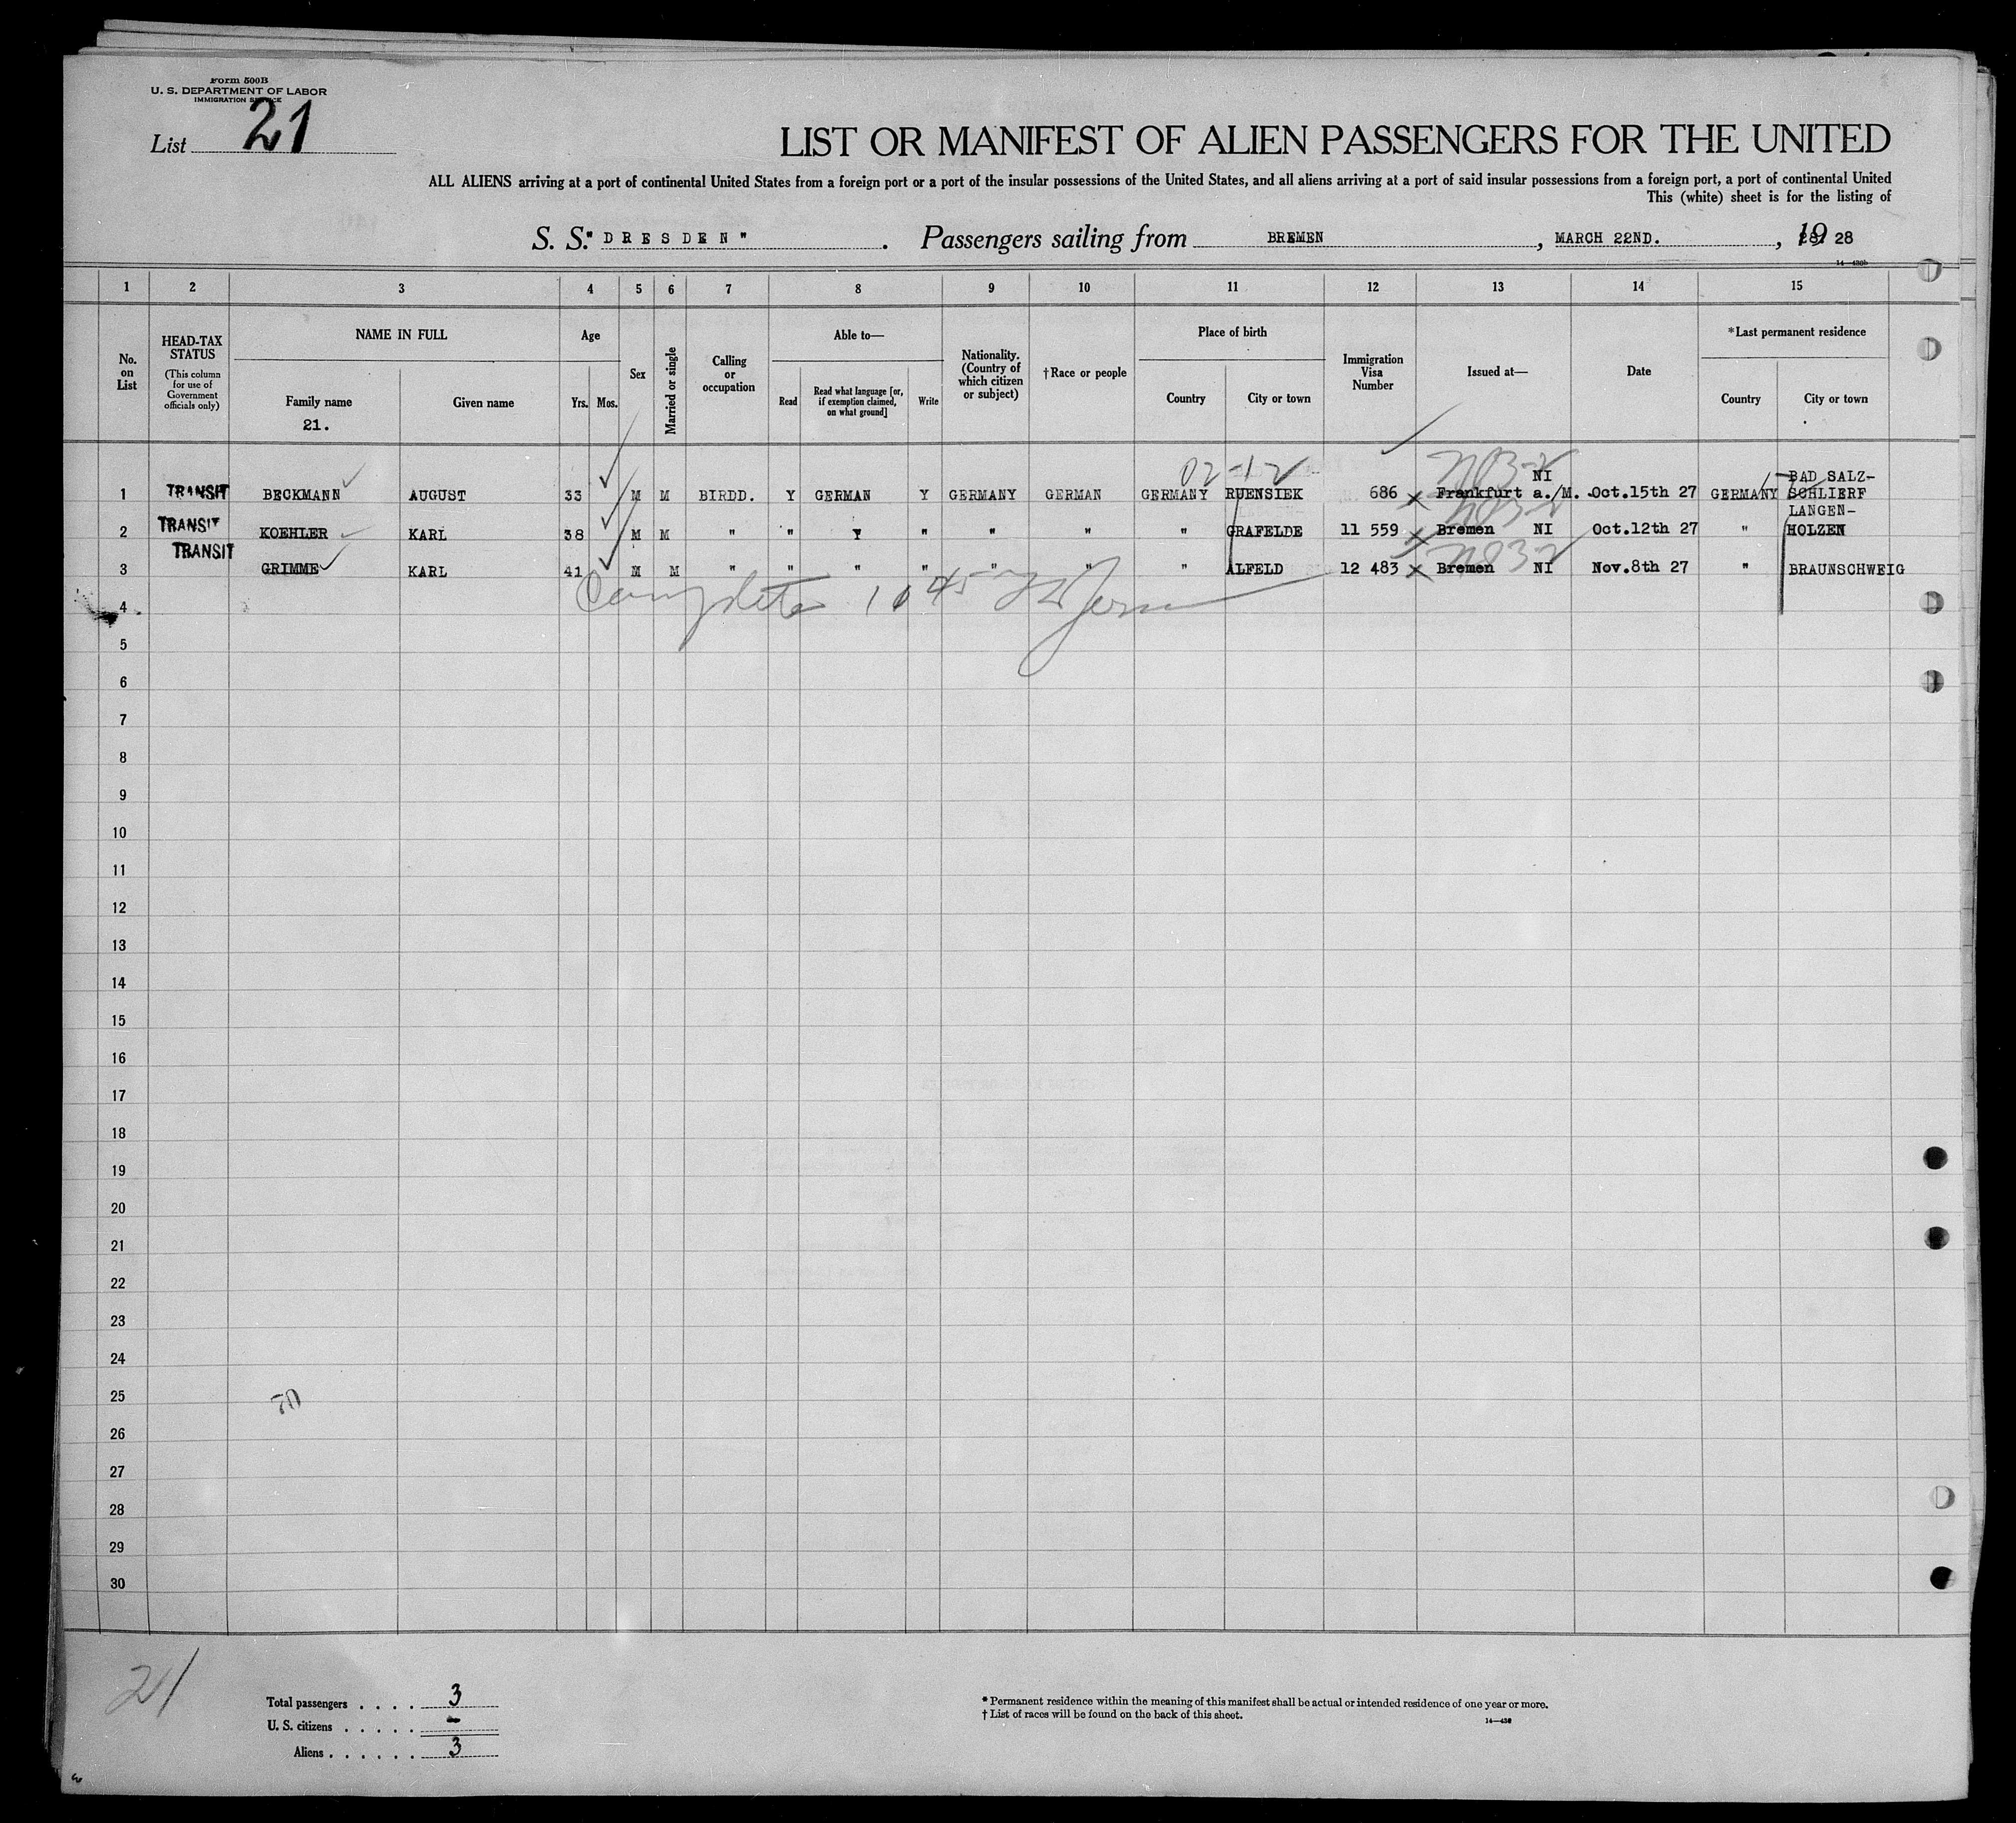 Form 500B
U. S. DEPARTMENT OF LABOR
IMMIGRATION SERVICE
List 21
LIST OR MANIFEST OF ALIEN PASSENGERS FOR THE UNITED
ALL ALIENS arriving at a port of continental United States from a foreign port or a port of the insular possessions of the United States, and all aliens arriving at a port of said insular possessions from a foreign port, a port of continental United
This (white) sheet is for the listing of
S. S. "DRESDEN". Passengers sailing from BREMEN, MARCH 22ND., 19 28
1 2 3 4 5 6 7 8 9 10 11 12 13 14 15
No. on List
HEAD-TAX STATUS
(This column for use of Government officials only)
NAME IN FULL
Family name
21.
Given name
Age
Yrs. Mos.
Sex
Married or single
Calling or occupation
Able to—
Read
Read what language [or, if exemption claimed, on what ground]
Write
Nationality. (Country of which citizen or subject)
†Race or people
Place of birth
Country
City or town
Immigration Visa Number
Issued at—
Date
*Last permanent residence
Country
City or town
02-12
1 TRANSIT BECKMANN AUGUST 33 M M BIRDD. Y GERMAN Y GERMANY GERMAN GERMANY RUENSIEK 686 x Frankfurt a./M. NI Oct.15th 27 GERMANY BAD SALZ-SCHLIERF
2 TRANSIT KOEHLER KARL 38 M M " " Y " " " " GRAFELDE 11 559 x Bremen NI Oct.12th 27 " LANGEN-HOLZEN
3 TRANSIT GRIMME KARL 41 M M " " " " " " " ALFELD 12 483 x Bremen NI Nov.8th 27 " BRAUNSCHWEIG
4
5
6
7
8
9
10
11
12
13
14
15
16
17
18
19
20
21
22
23
24
25
70
26
27
28
29
30
21
Total passengers . . . . 3
U. S. citizens . . . . . -
Aliens . . . . . . 3
* Permanent residence within the meaning of this manifest shall be actual or intended residence of one year or more.
† List of races will be found on the back of this sheet.